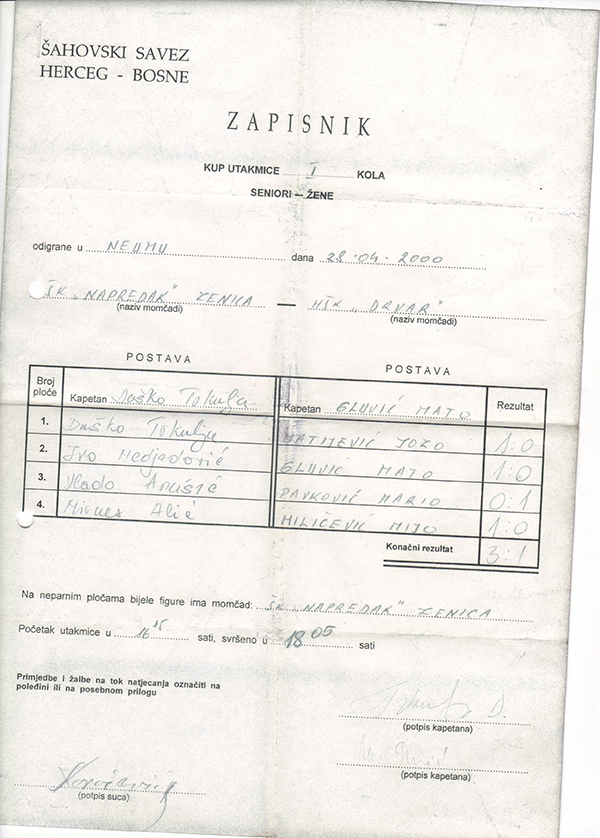 ŠAHOVSKI SAVEZ
HERCEG - BOSNE
ZAPISNIK
KUP UTAKMICE I KOLA
SENIORI – ŽENE
odigrane u NEUMU dana 28.04.2000
ŠK „NAPREDAK" ZENICA — HŠK „DRVAR"
(naziv momčadi) (naziv momčadi)
POSTAVA POSTAVA
Broj ploče Kapetan Duško Tokalja Kapetan GLUVIĆ MATO Rezultat
1. Duško Tokalja MATIJEVIĆ JOZO 1:0
2. Ivo Medjedović GLUVIĆ MATO 1:0
3. Vlado PAVKOVIĆ MARIO 0:1
4. Mirnes Alić MILIČEVIĆ MIJO 1:0
Konačni rezultat 3:1
Na neparnim pločama bijele figure ima momčad: ŠK „NAPREDAK" ZENICA
Početak utakmice u 16 15 sati, svršeno u 18 05 sati
Primjedbe i žalbe na tok natjecanja označiti na
poleđini ili na posebnom prilogu
(potpis kapetana)
(potpis kapetana)
(potpis suca)